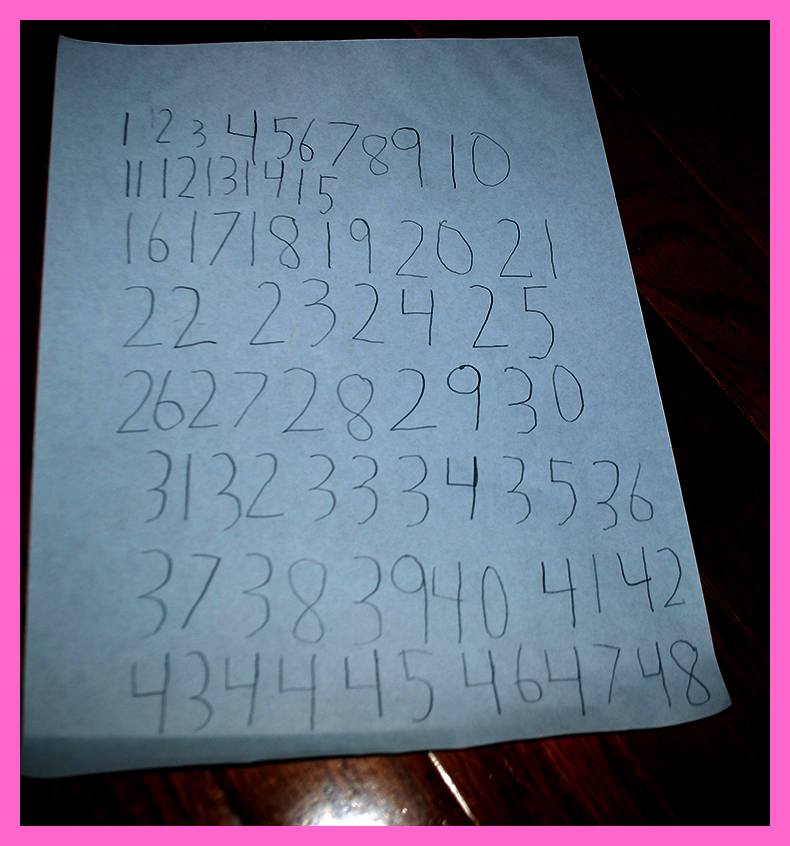 1 2 3 4 5 6 7 8 9 10
11 12 13 14 15
16 17 18 19 20 21
22 23 24 25
26 27 28 29 30
31 32 33 34 35 36
37 38 39 40 41 42
43 44 45 46 47 48